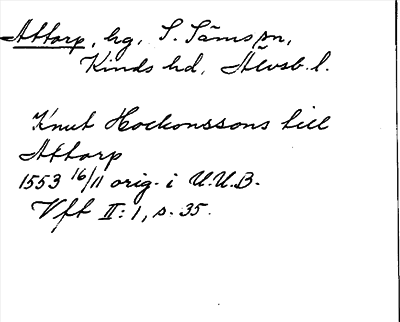 Attorp, hg, S. Säms sn,
Kinds hd, Älvsb. l.
Knut Hockonssons till
Attorp
1553 16/11 orig. i U.U.B.
Vft II:1, s. 35.